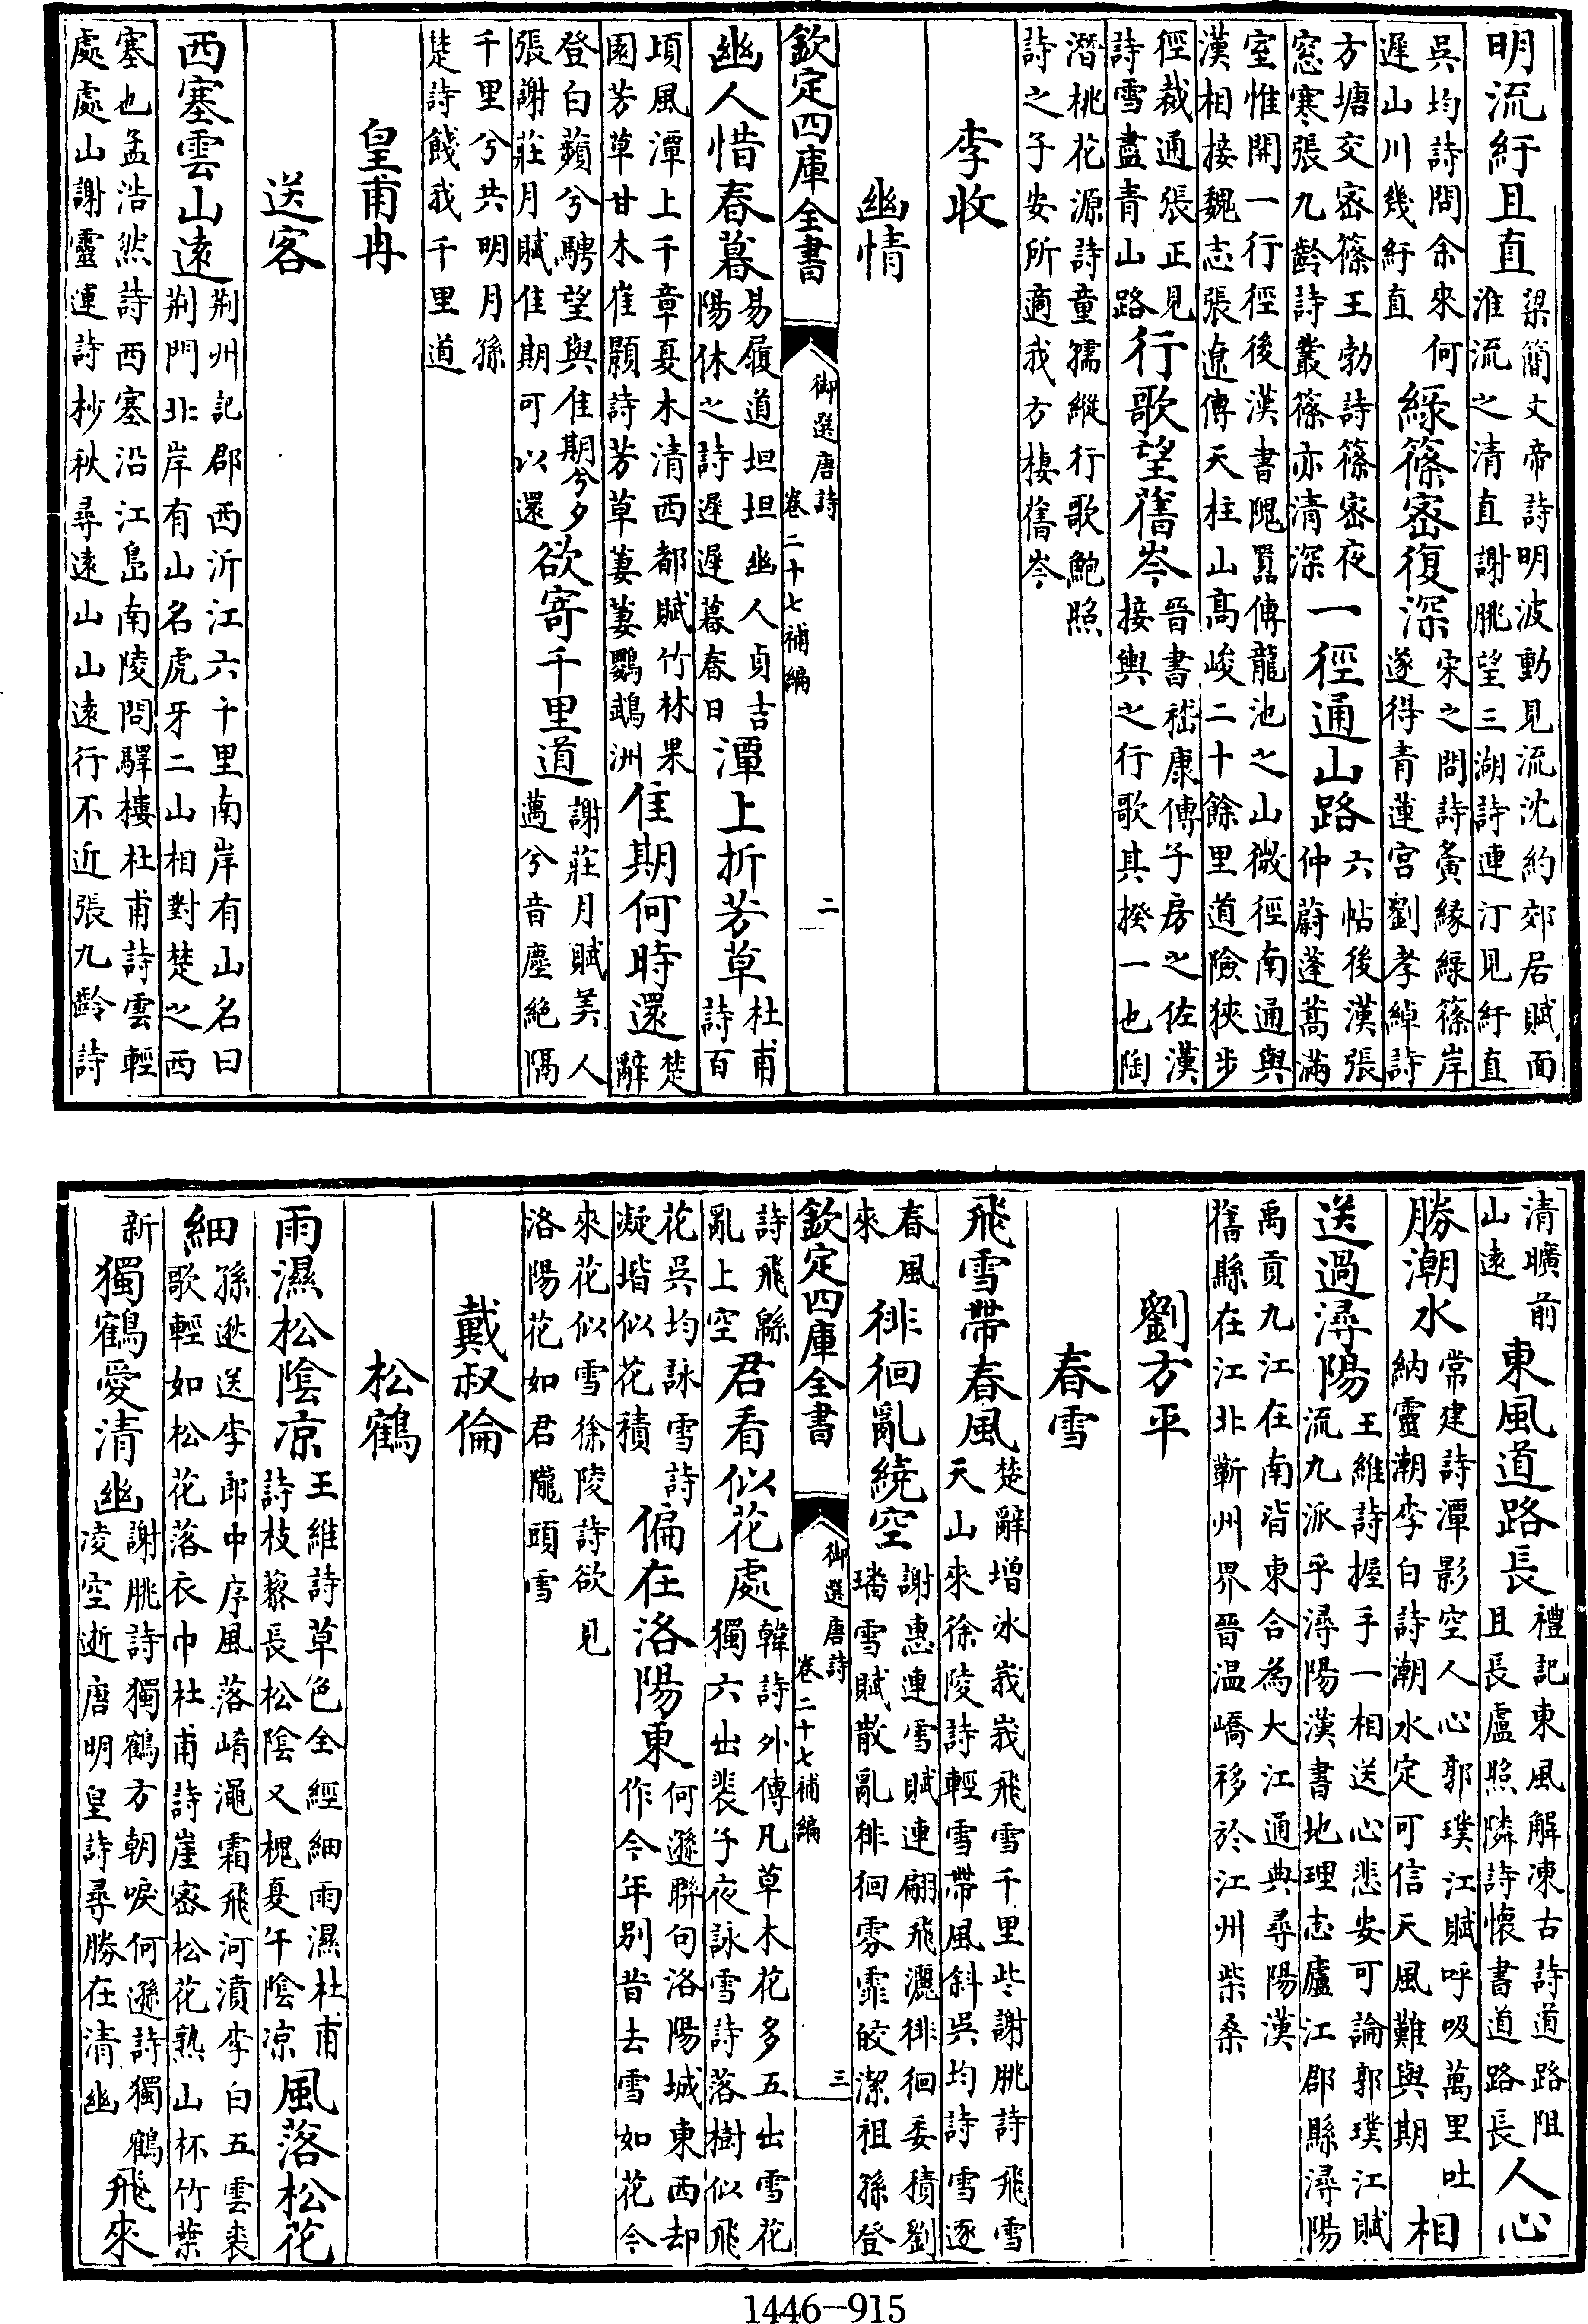 明流紆且直梁簡文帝詩明波動見流沈約郊居賦面
淮流之清直謝脁望三湖詩連汀見紆直
吳均詩問余來何
遲山川幾紆直綠篠密復深宋之問詩夤緣綠篠岸
遂得青蓮宮劉孝綽詩
方塘交密篠王勃詩篠密夜
窓寒張九齡詩叢篠亦清深一徑通山路六帖後漢張
仲蔚蓬蒿滿
室惟開一行徑後漢書隗囂傳龍池之山微徑南通與
漢相接魏志張遼傳天柱山高峻二十餘里道險狹步
徑裁通張正見
詩雪盡青山路行歌望舊岑晉書嵇康傳子房之佐漢
接輿之行歌其揆一也陶
潛桃花源詩童孺縱行歌鮑照
詩之子安所適我方棲舊岑
李收
幽情
欽定四庫全書
御選唐詩
卷二十七補編
二
幽人惜春暮易履道坦坦幽人貞吉
陽休之詩遲遲暮春日潭上折芳草杜甫
詩百
頃風潭上千章夏木清西都賦竹林果
園芳草甘木崔顥詩芳草萋萋鸚鵡洲佳期何時還楚
辭
登白薠兮騁望與佳期兮夕
張謝莊月賦佳期可以還欲寄千里道謝莊月賦美人
邁兮音塵絕隔
千里兮共明月孫
楚詩餞我千里道
皇甫冉
送客
西塞雲山遠荆州記郡西沂江六千里南岸有山名曰
荆門北岸有山名虎牙二山相對楚之西
塞也孟浩然詩西塞沿江島南陵問驛樓杜甫詩雲輕
處處山謝靈運詩杪秋尋遠山山遠行不近張九齡詩
清曠前
山遠東風道路長禮記東風解凍古詩道路阻
且長盧照隣詩懷書道路長人心
勝潮水常建詩潭影空人心郭璞江賦呼吸萬里吐
納靈潮李白詩潮水定可信天風難與期相
送過潯陽王維詩握手一相送心悲安可論郭璞江賦
流九派乎潯陽漢書地理志廬江郡縣潯陽
禹貢九江在南皆東合為大江通典尋陽漢
舊縣在江北蘄州界晉温嶠移於江州柴桑
劉方平
春雪
飛雪帶春風楚辭增冰峩峩飛雪千里些謝脁詩飛雪
天山來徐陵詩輕雪帶風斜吳均詩雪逐
春風
來徘徊亂繞空謝惠連雪賦連翩飛灑徘徊委積劉
璠雪賦散亂徘徊雰霏皎潔祖孫登
欽定四庫全書
御選唐詩
卷二十七補編
三
詩飛緜
亂上空君看似花處韓詩外傳凡草木花多五出雪花
獨六出裴子夜詠雪詩落樹似飛
花吳均詠雪詩
凝堦似花積偏在洛陽東何遜聯句洛陽城東西却
作今年別昔去雪如花今
來花似雪徐陵詩欲見
洛陽花如君隴頭雪
戴叔倫
松鶴
雨濕松陰凉王維詩草色全經細雨濕杜甫
詩枝藜長松陰又槐夏午陰凉風落松花
細孫逖送李郎中序風落崤澠霜飛河濆李白五雲裘
歌輕如松花落衣巾杜甫詩崖密松花熟山杯竹葉
新獨鶴愛清幽謝脁詩獨鶴方朝唳何遜詩獨鶴
凌空逝唐明皇詩尋勝在清幽飛來
1446-915